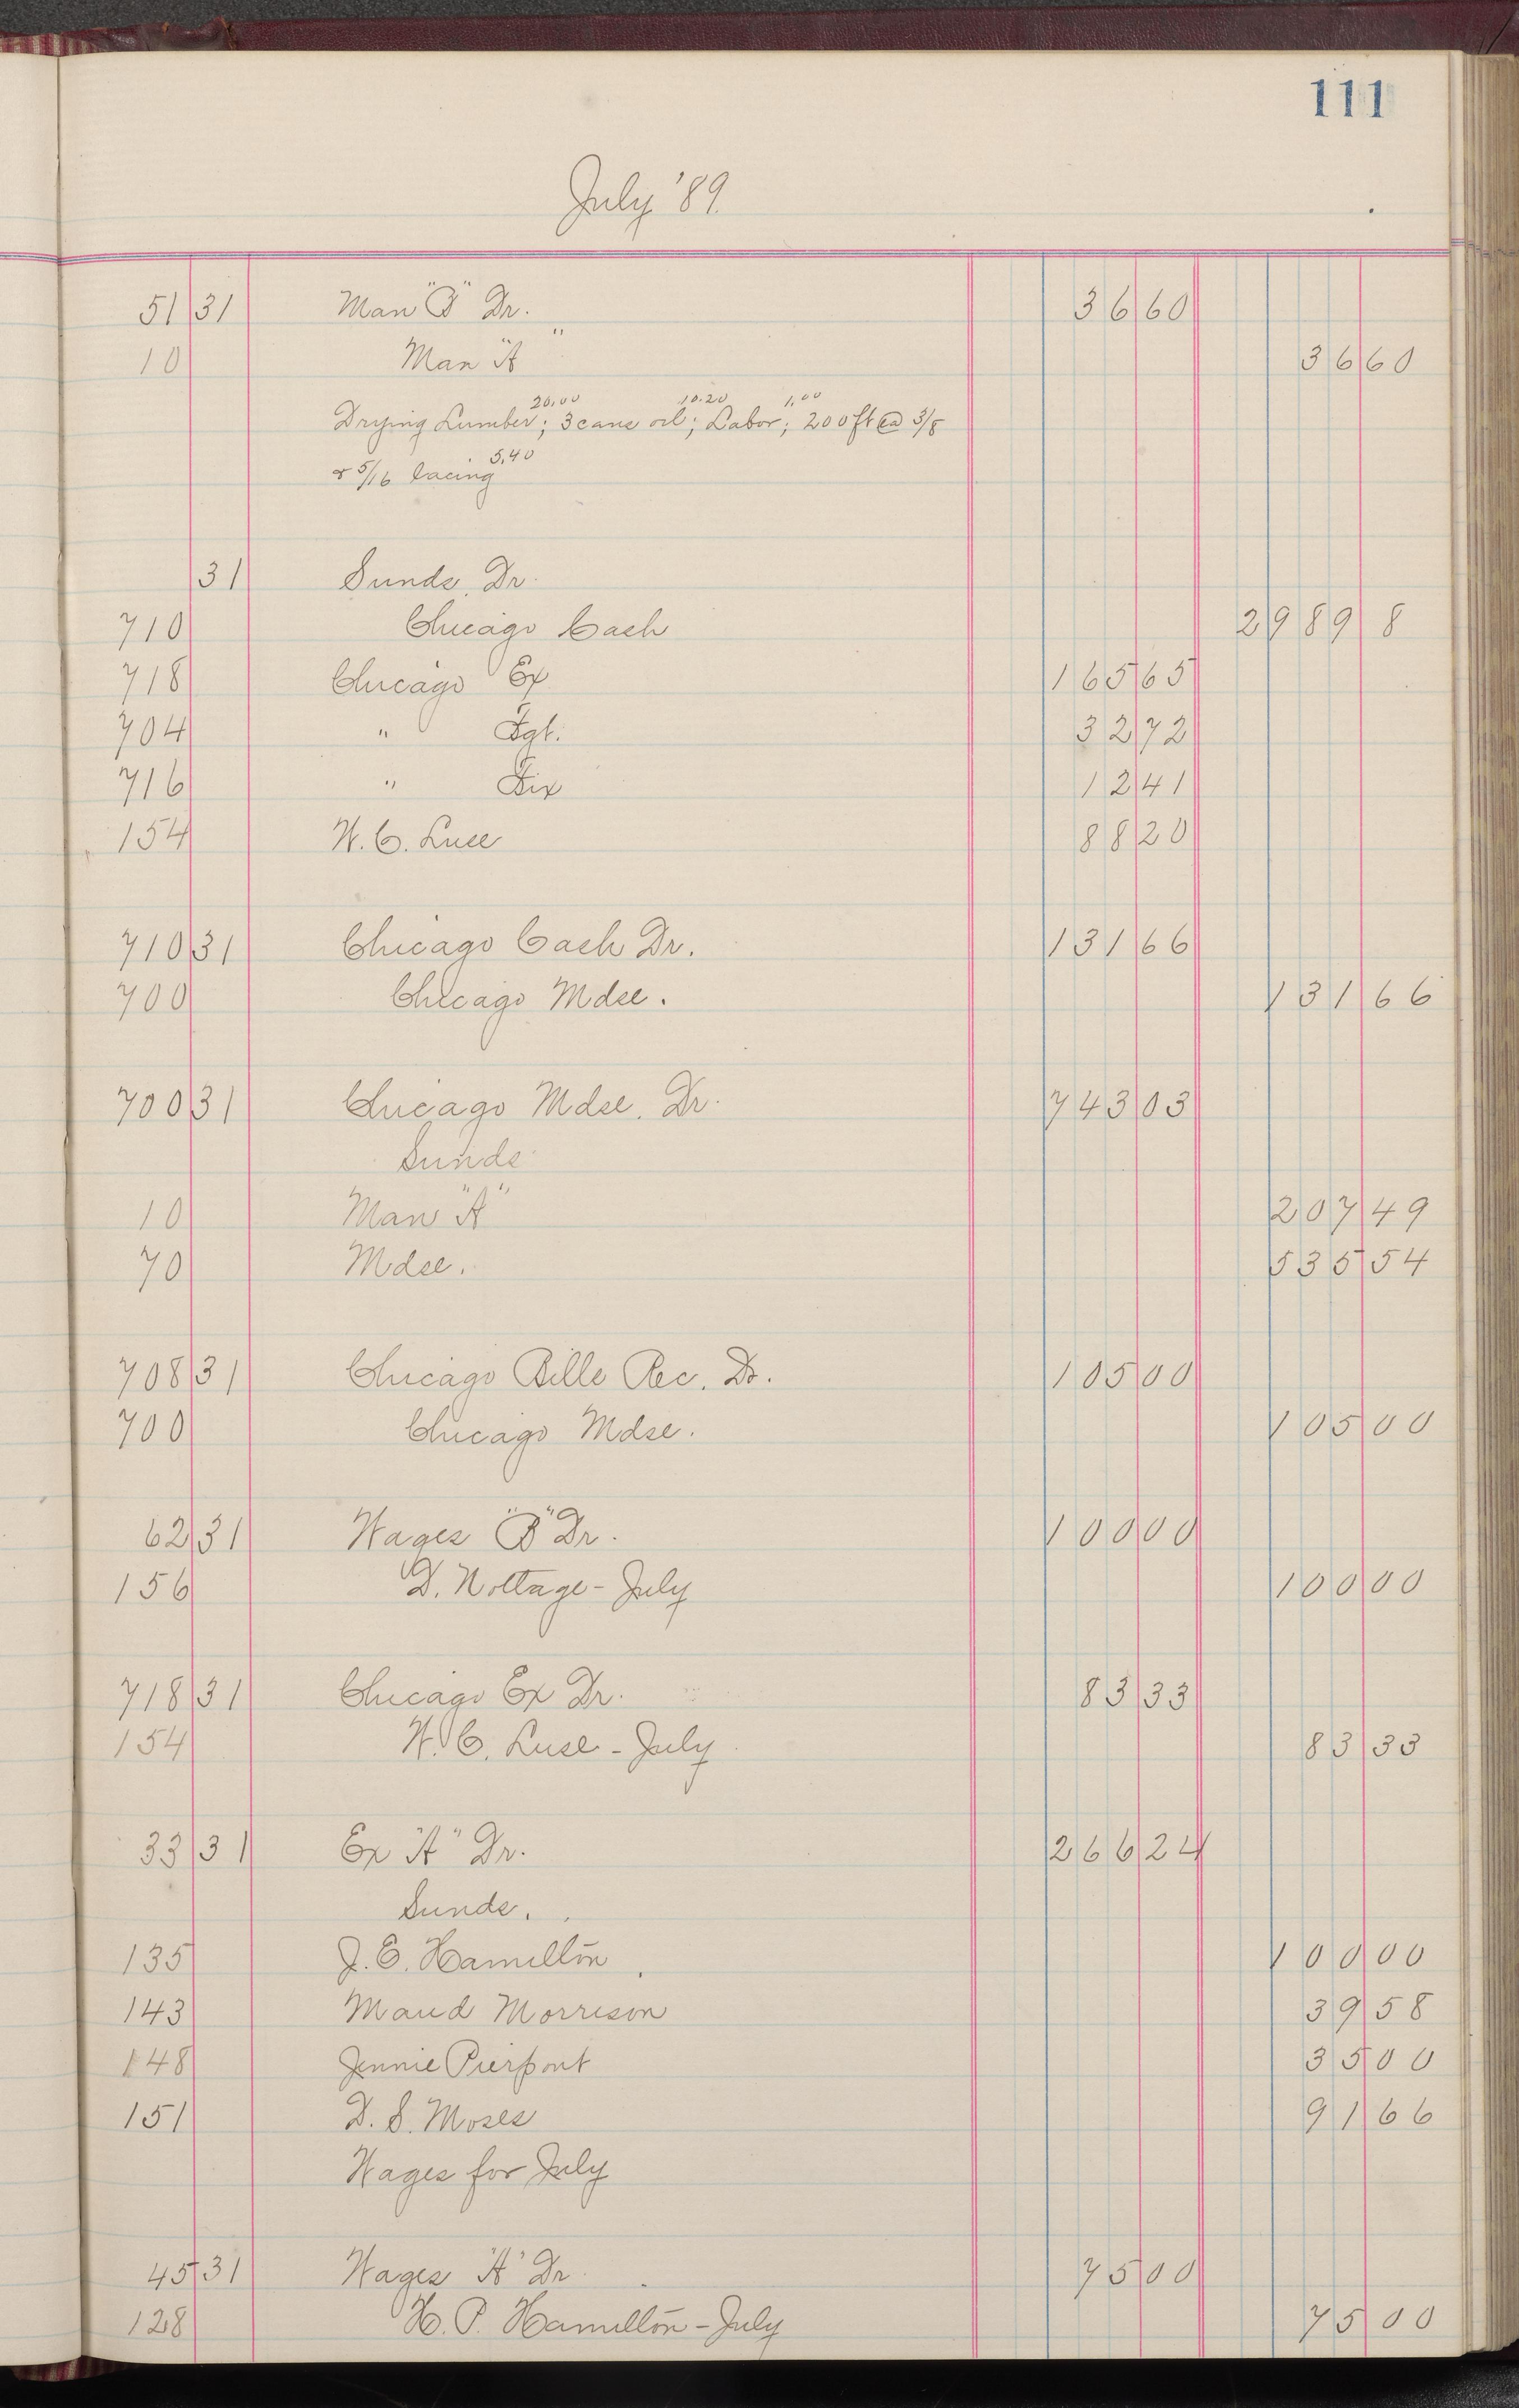 111
July '89.
51 31 Man "B" Dr. 36 60
10 Man "A" 36 60
20.00 10.20 1.00
Drying Lumber; 3 cans oil; Labor; 200 ft @ 3/8
5.40
& 5/16 lacing
31 Sunds. Dr.
710 Chicago Cash 298 98
718 Chicago Ex 165 65
704 " Fgt. 32 72
716 " Fix 12 41
154 W. C. Luse 88 20
710 31 Chicago Cash Dr. 131 66
700 Chicago Mdse. 131 66
700 31 Chicago Mdse. Dr. 743 03
Sunds
10 Man "A" 207 49
70 Mdse. 535 54
708 31 Chicago Bills Rec. Dr. 105 00
700 Chicago Mdse. 105 00
62 31 Wages "B" Dr. 100 00
156 D. Nottage - July 100 00
718 31 Chicago Ex Dr. 83 33
154 W. C. Luse - July 83 33
33 31 Ex "A" Dr. 266 24
Sunds.
135 J. E. Hamilton 100 00
143 Maud Morrison 39 58
148 Jennie Pierpont 35 00
151 D. S. Moses 91 66
Wages for July
45 31 Wages "A" Dr 75 00
128 H. P. Hamilton - July 75 00